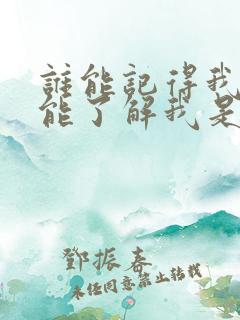 誰能記得我
能了解我是
鄧振春
未任同意禁止转载